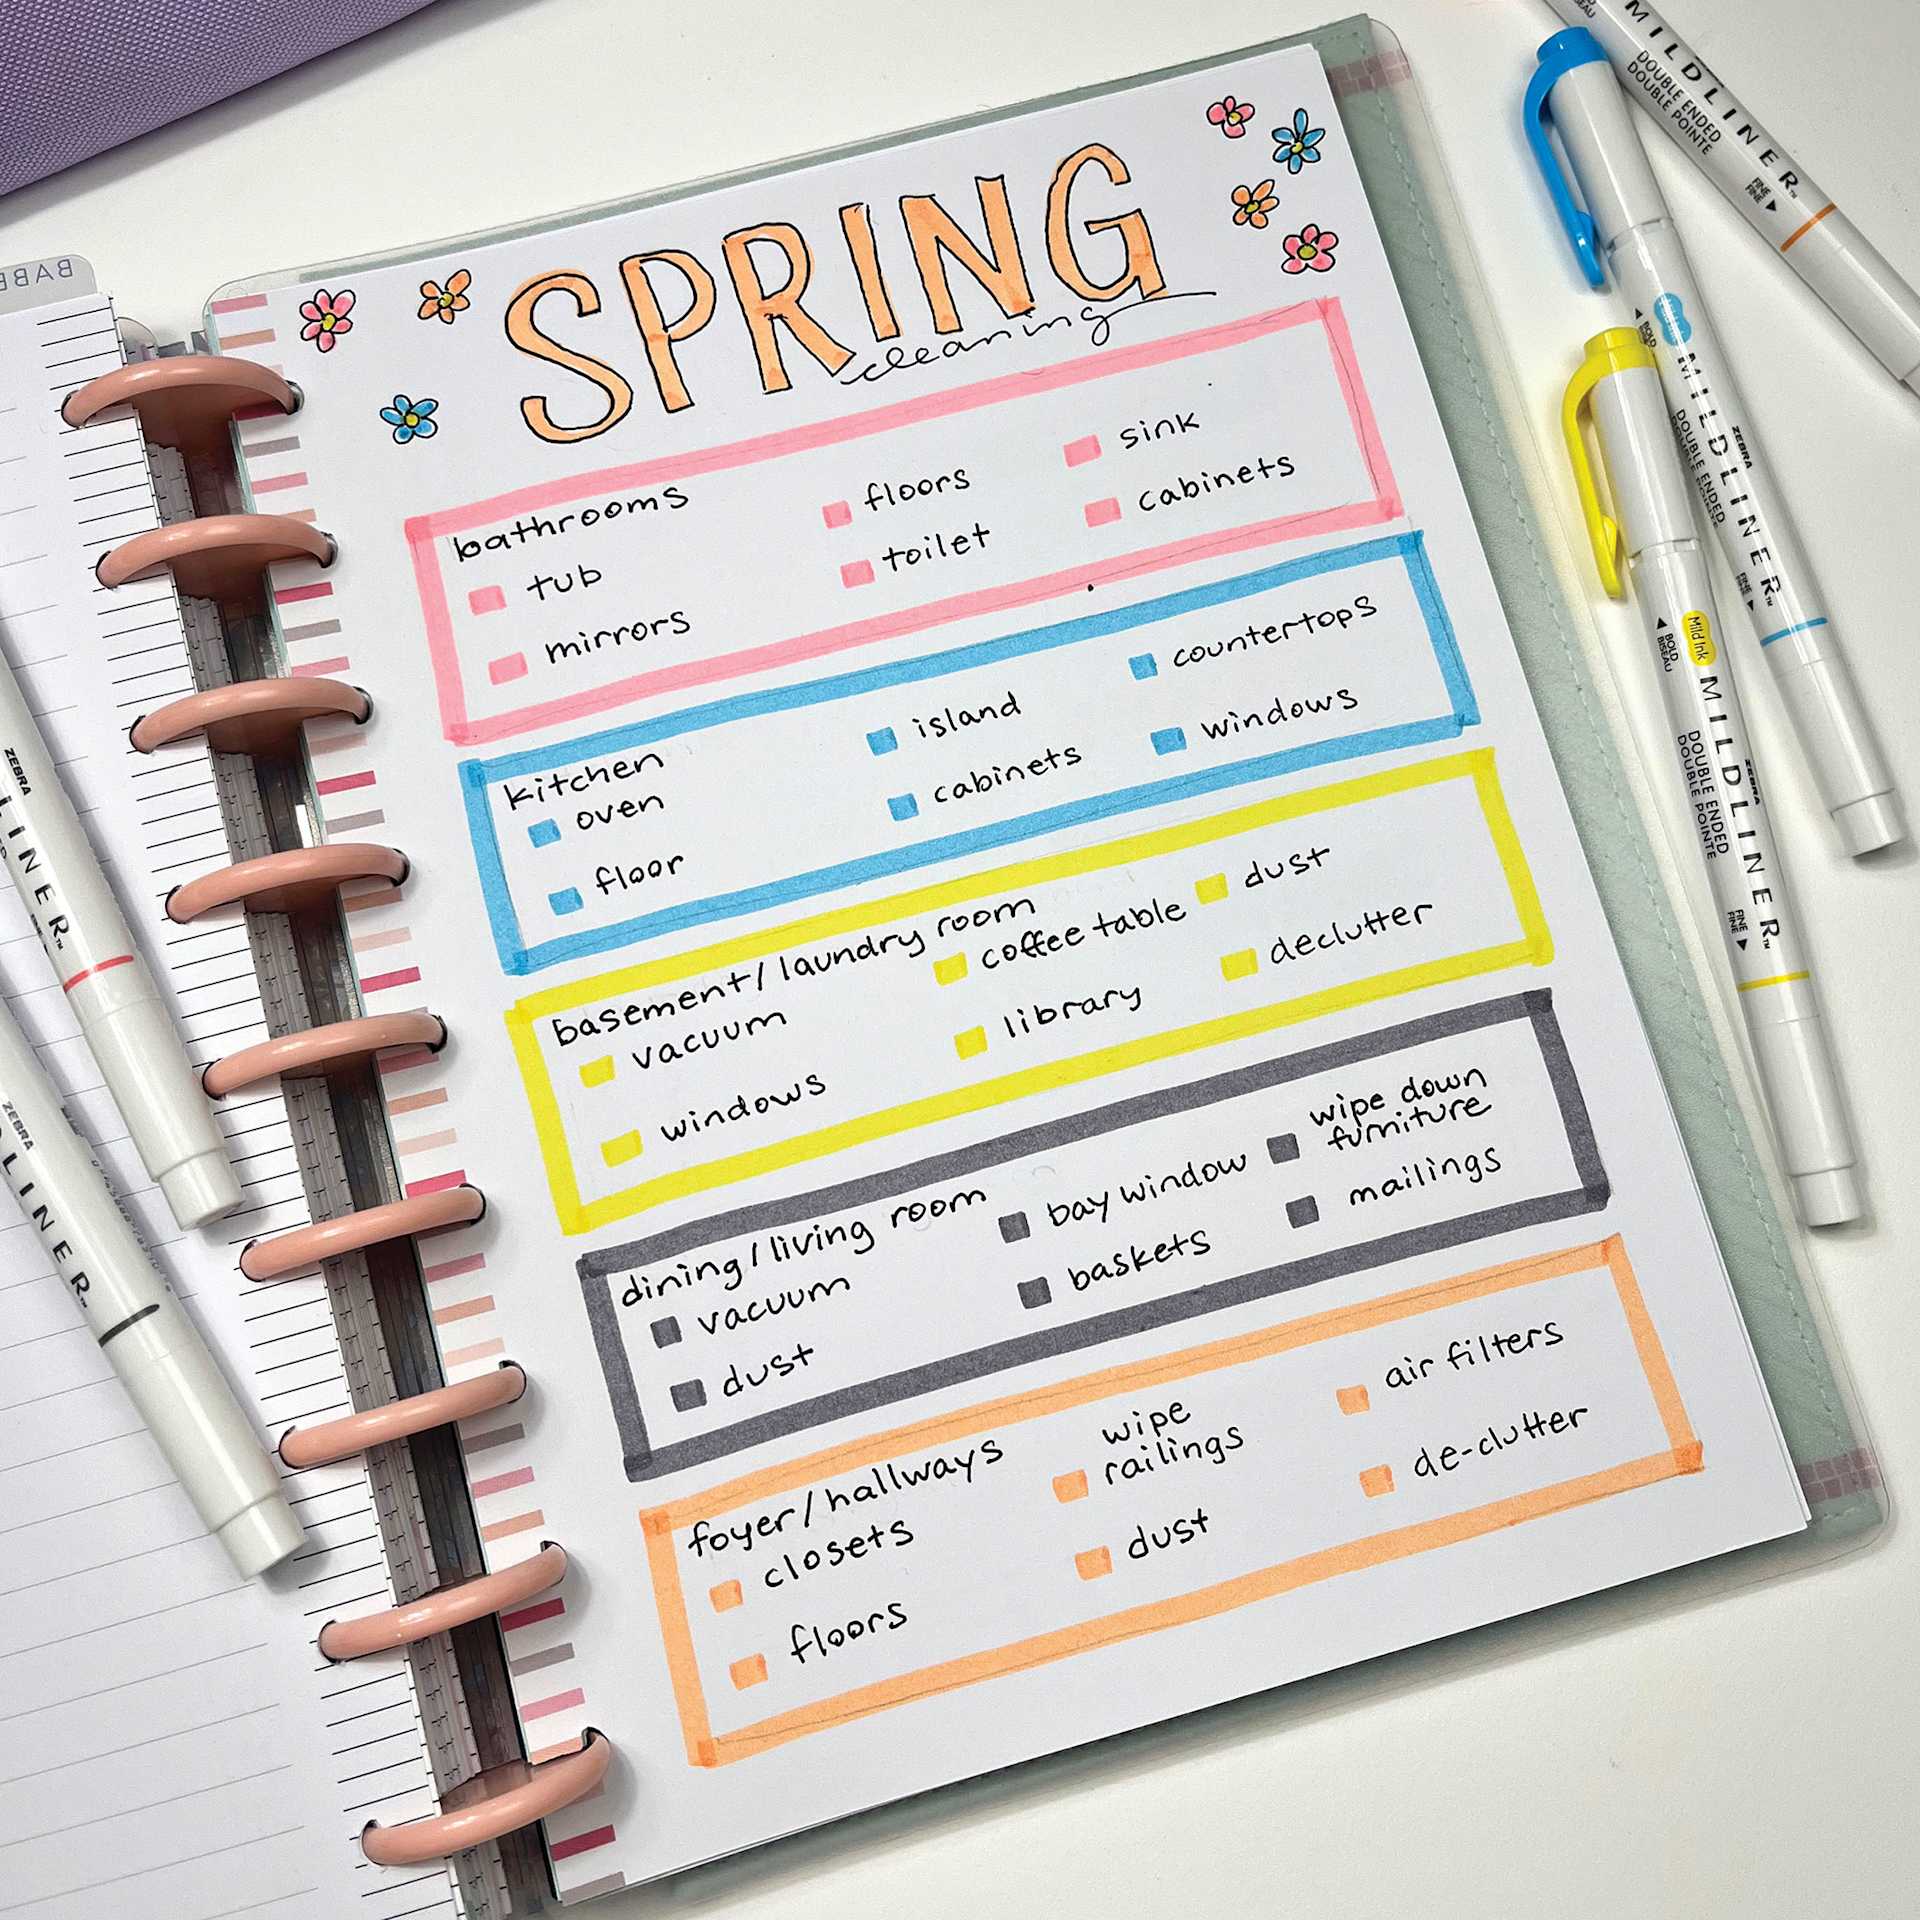 SPRING
cleaning
bathrooms
tub
mirrors
floors
toilet
sink
cabinets
kitchen
oven
floor
island
cabinets
countertops
windows
basement/laundry room
vacuum
windows
coffee table
library
dust
declutter
dining/living room
vacuum
dust
bay window
baskets
wipe down
furniture
mailings
foyer/hallways
closets
floors
wipe
railings
dust
air filters
de-clutter
MILDLINER™
DOUBLE ENDED
DOUBLE POINTE
FINE
FINE
BOLD
BISEAU
ZEBRA
MILDLINER™
DOUBLE ENDED
DOUBLE POINTE
FINE
FINE
BOLD
BISEAU
Mild Ink
ZEBRA
MILDLINER™
DOUBLE ENDED
DOUBLE POINTE
FINE
FINE
ZEBRA
LINER™
ZEBRA
LINER™